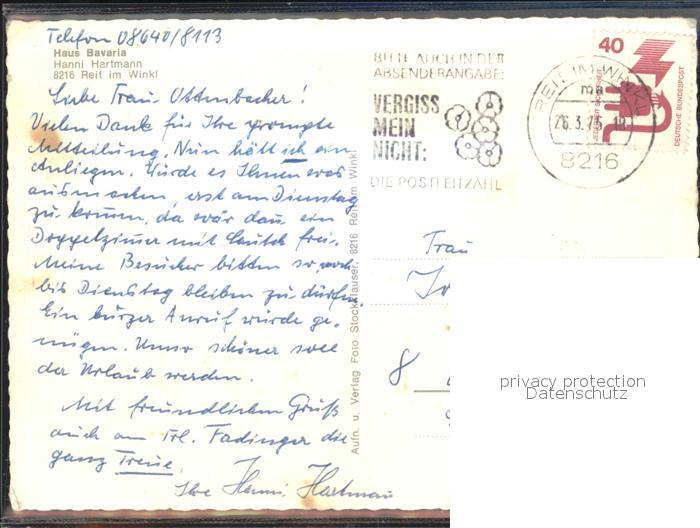 Telefon 08640/8113
Haus Bavaria
Hanni Hartmann
8216 Reit im Winkl
Liebe Frau Ottenbacher!
Vielen Dank für Ihre prompte
Mitteilung. Nun hätt ich ein
Anliegen. Würde es Ihnen was
ausmachen, erst am Dienstag
zu kommen, da wär dan ein
Doppelzimmer mit frei.
Meine Besucher bitten so,
bis Dienstag bleiben zu dürfen.
Ein kurzer Anruf würde ge-
nügen. Umso schöner soll
der Urlaub werden.
Mit freundlichem Gruß
auch an Frl. Fadinger die
ganz Treue,
Ihre Hanni Hartmann
Aufn. u. Verlag Foto Stockklauser, 8216 Reit im Winkl
BITTE AUCH IN DER
ABSENDERANGABE:
VERGISS
MEIN
NICHT:
DIE POSTLEITZAHL
REIT IM WINKL
ma
26.3.75-18
8216
40
DEUTSCHE BUNDESPOST
Frau
8
privacy protection
Datenschutz